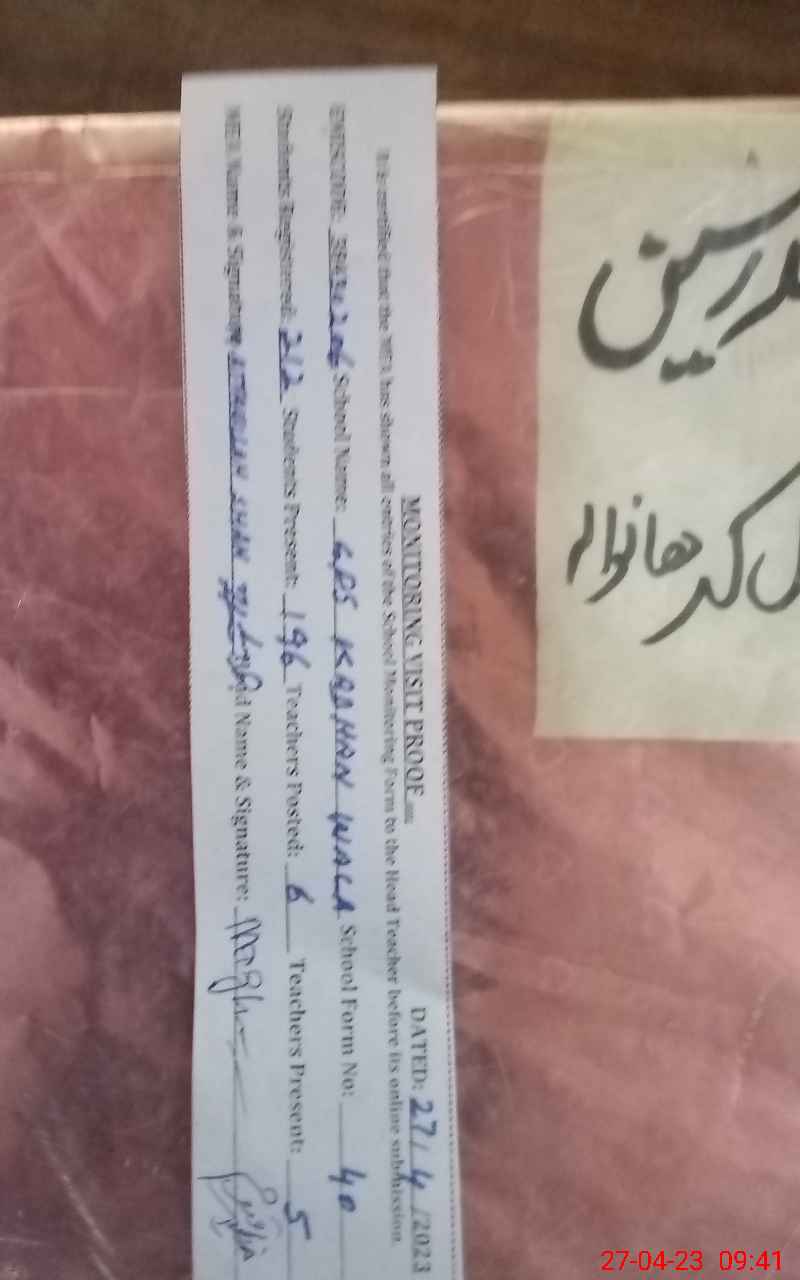 MONITORING VISIT PROOF DATED: 27/4/2023
It is certified that the MEA has shown all entries of the School Monitoring Form to the Head Teacher before its online submission.
EMISCODE: School Name: GPS KADHAN WALA School Form No: 40
Students Registered: 212 Students Present: 196 Teachers Posted: 6 Teachers Present: 5
MEA Name & Signature KHAN Name & Signature:
کدھانوالہ
27-04-23 09:41